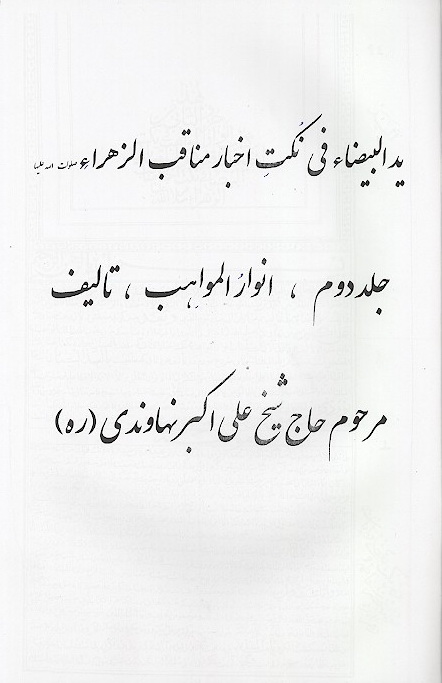 ید البیضاء فی نُکتِ اخبار مناقب الزهراء صلوات الله علیها
جلد دوم ، انوارُ المواهِب ، تالیف
مرحوم حاج شیخ علی اکبر نهاوندی (ره)